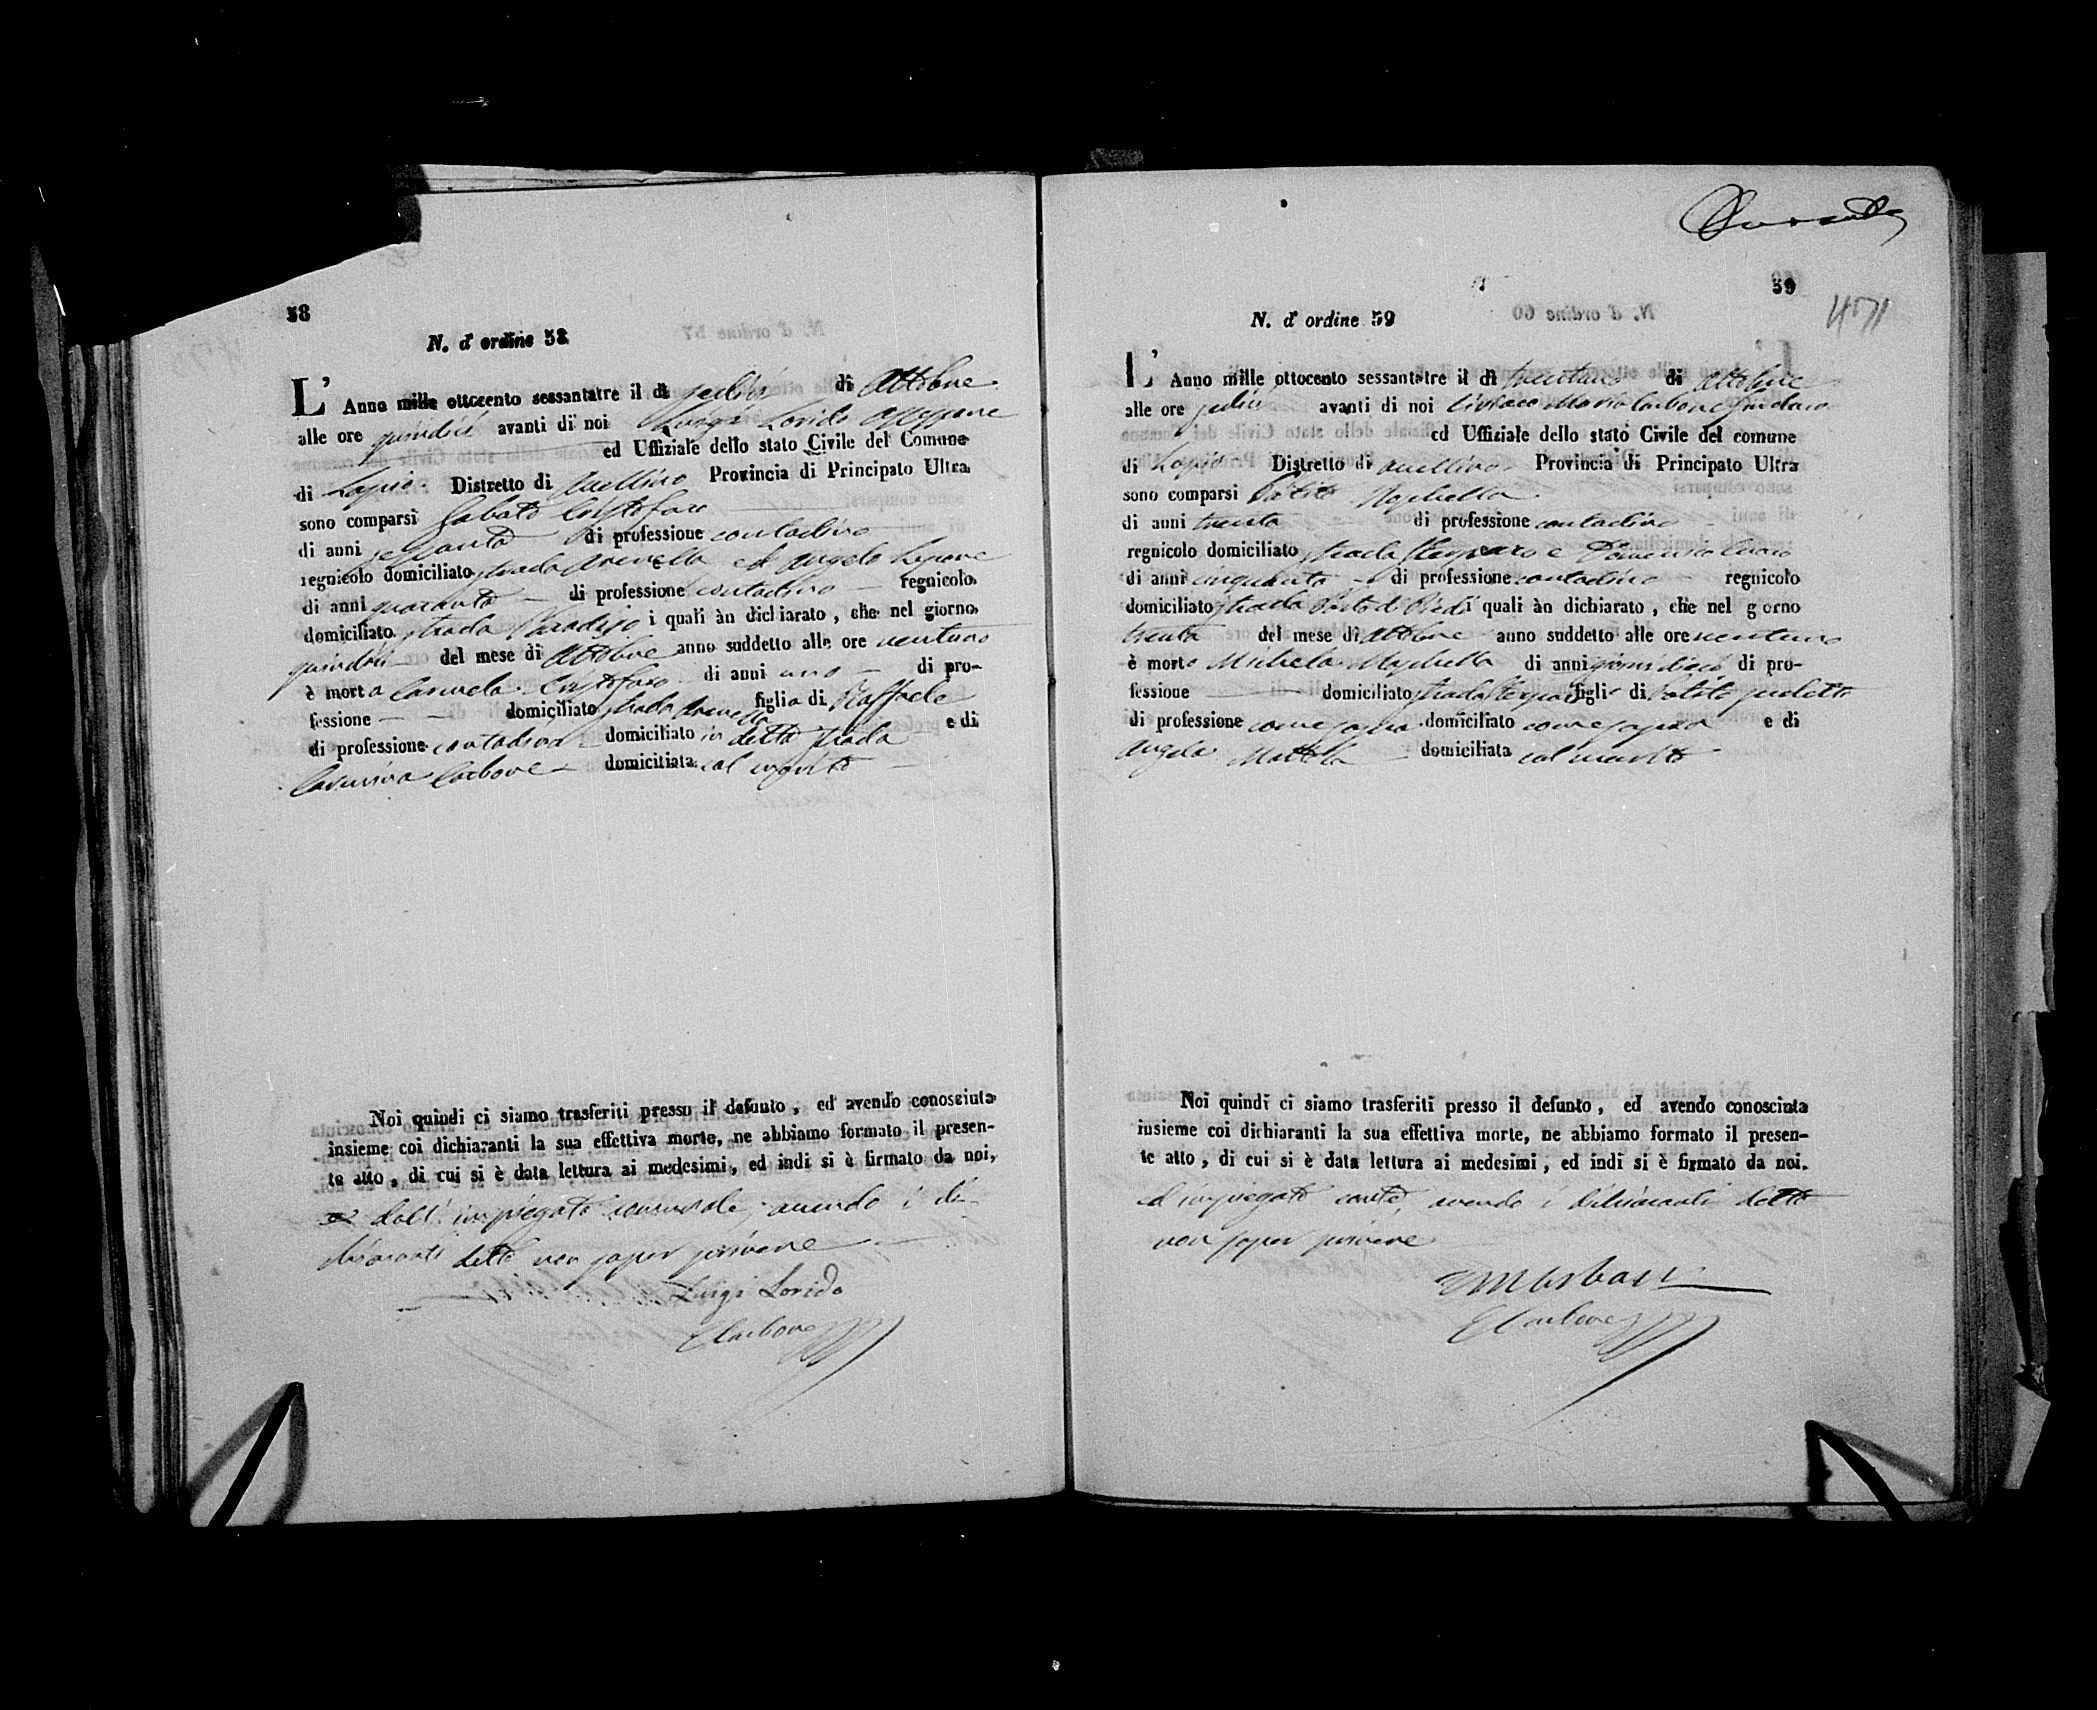 58
N. d' ordine 58
L' Anno mille ottocento sessantatre il dì sedici di Ottobre
alle ore quindici avanti di noi Luigi Lorido Assessore
ed Uffiziale dello stato Civile del Comune
di Lapio Distretto di Avellino Provincia di Principato Ultra
sono comparsi Sabato Cristofaro
di anni sessanta di professione contadino
regnicolo domiciliato strada Arenella ed Angelo Lepore
di anni quaranta di professione contadino regnicolo
domiciliato strada Paradiso i quali àn dichiarato, che nel giorno
quindici del mese di Ottobre anno suddetto alle ore ventuno
è morta Carmela Cristofaro di anni uno di pro-
fessione domiciliato strada Arenella figlia di Raffaele
di professione contadino domiciliato in detta strada e di
Carmina Carbone domiciliata col marito
Noi quindi ci siamo trasferiti presso il defunto, ed avendo conosciuta
insieme coi dichiaranti la sua effettiva morte, ne abbiamo formato il presen-
te atto, di cui si è data lettura ai medesimi, ed indi si è firmato da noi,
dall' impiegato comunale, avendo i di-
chiaranti detto non saper scrivere
Luigi Lorido
Carbone
59
N. d' ordine 59
L' Anno mille ottocento sessantatre il dì trentuno di Ottobre
alle ore sedici avanti di noi Maria Carbone Sindaco
ed Uffiziale dello stato Civile del comune
di Lapio Distretto di Avellino Provincia di Principato Ultra
sono comparsi
di anni trenta di professione contadino
regnicolo domiciliato strada e
di anni cinquanta di professione contadino regnicolo
domiciliato strada i quali àn dichiarato, che nel giorno
trenta del mese di Ottobre anno suddetto alle ore ventuno
è morto di anni giorni dieci di pro-
fessione domiciliato strada figlio di sudetto
di professione come sopra domiciliato come sopra e di
Angela domiciliata col marito
Noi quindi ci siamo trasferiti presso il defunto, ed avendo conosciuta
insieme coi dichiaranti la sua effettiva morte, ne abbiamo formato il presen-
te atto, di cui si è data lettura ai medesimi, ed indi si è firmato da noi.
ed impiegato avendo i dichiaranti detto
non saper scrivere
Carbone